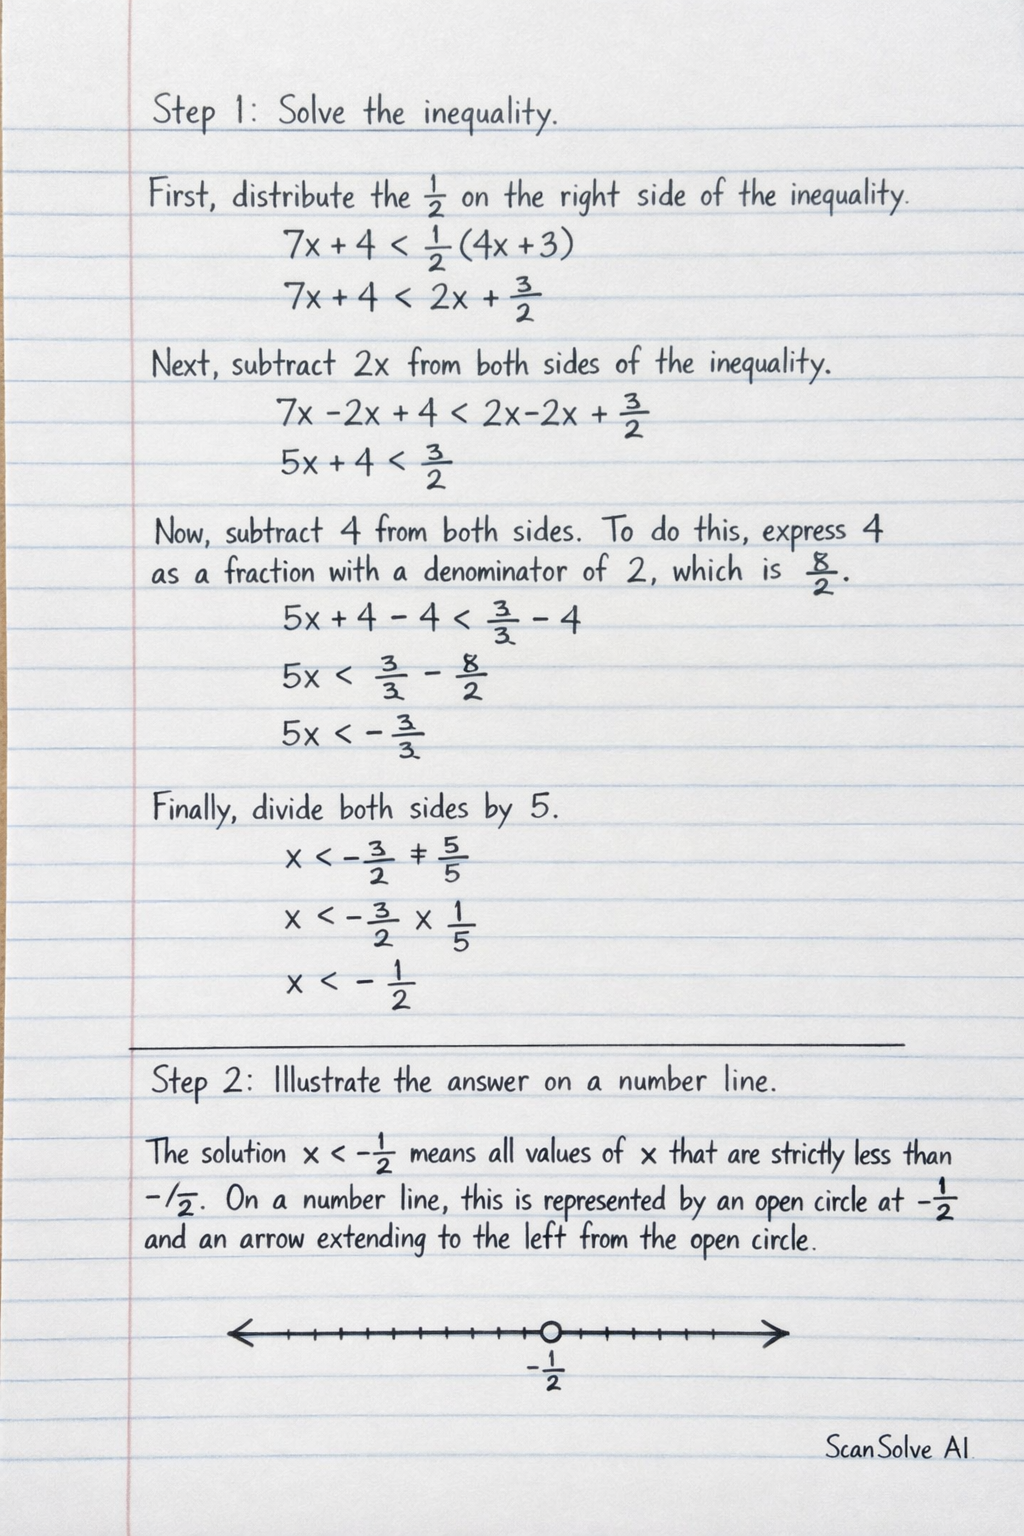 Step 1: Solve the inequality.
First, distribute the 1/2 on the right side of the inequality.
7x + 4 < 1/2 (4x + 3)
7x + 4 < 2x + 3/2
Next, subtract 2x from both sides of the inequality.
7x - 2x + 4 < 2x - 2x + 3/2
5x + 4 < 3/2
Now, subtract 4 from both sides. To do this, express 4
as a fraction with a denominator of 2, which is 8/2.
5x + 4 - 4 < 3/3 - 4
5x < 3/3 - 8/2
5x < - 3/3
Finally, divide both sides by 5.
x < - 3/2 ‡ 5/5
x < - 3/2 x 1/5
x < - 1/2
Step 2: Illustrate the answer on a number line.
The solution x < - 1/2 means all values of x that are strictly less than
-/2. On a number line, this is represented by an open circle at - 1/2
and an arrow extending to the left from the open circle.
- 1/2
ScanSolve AI